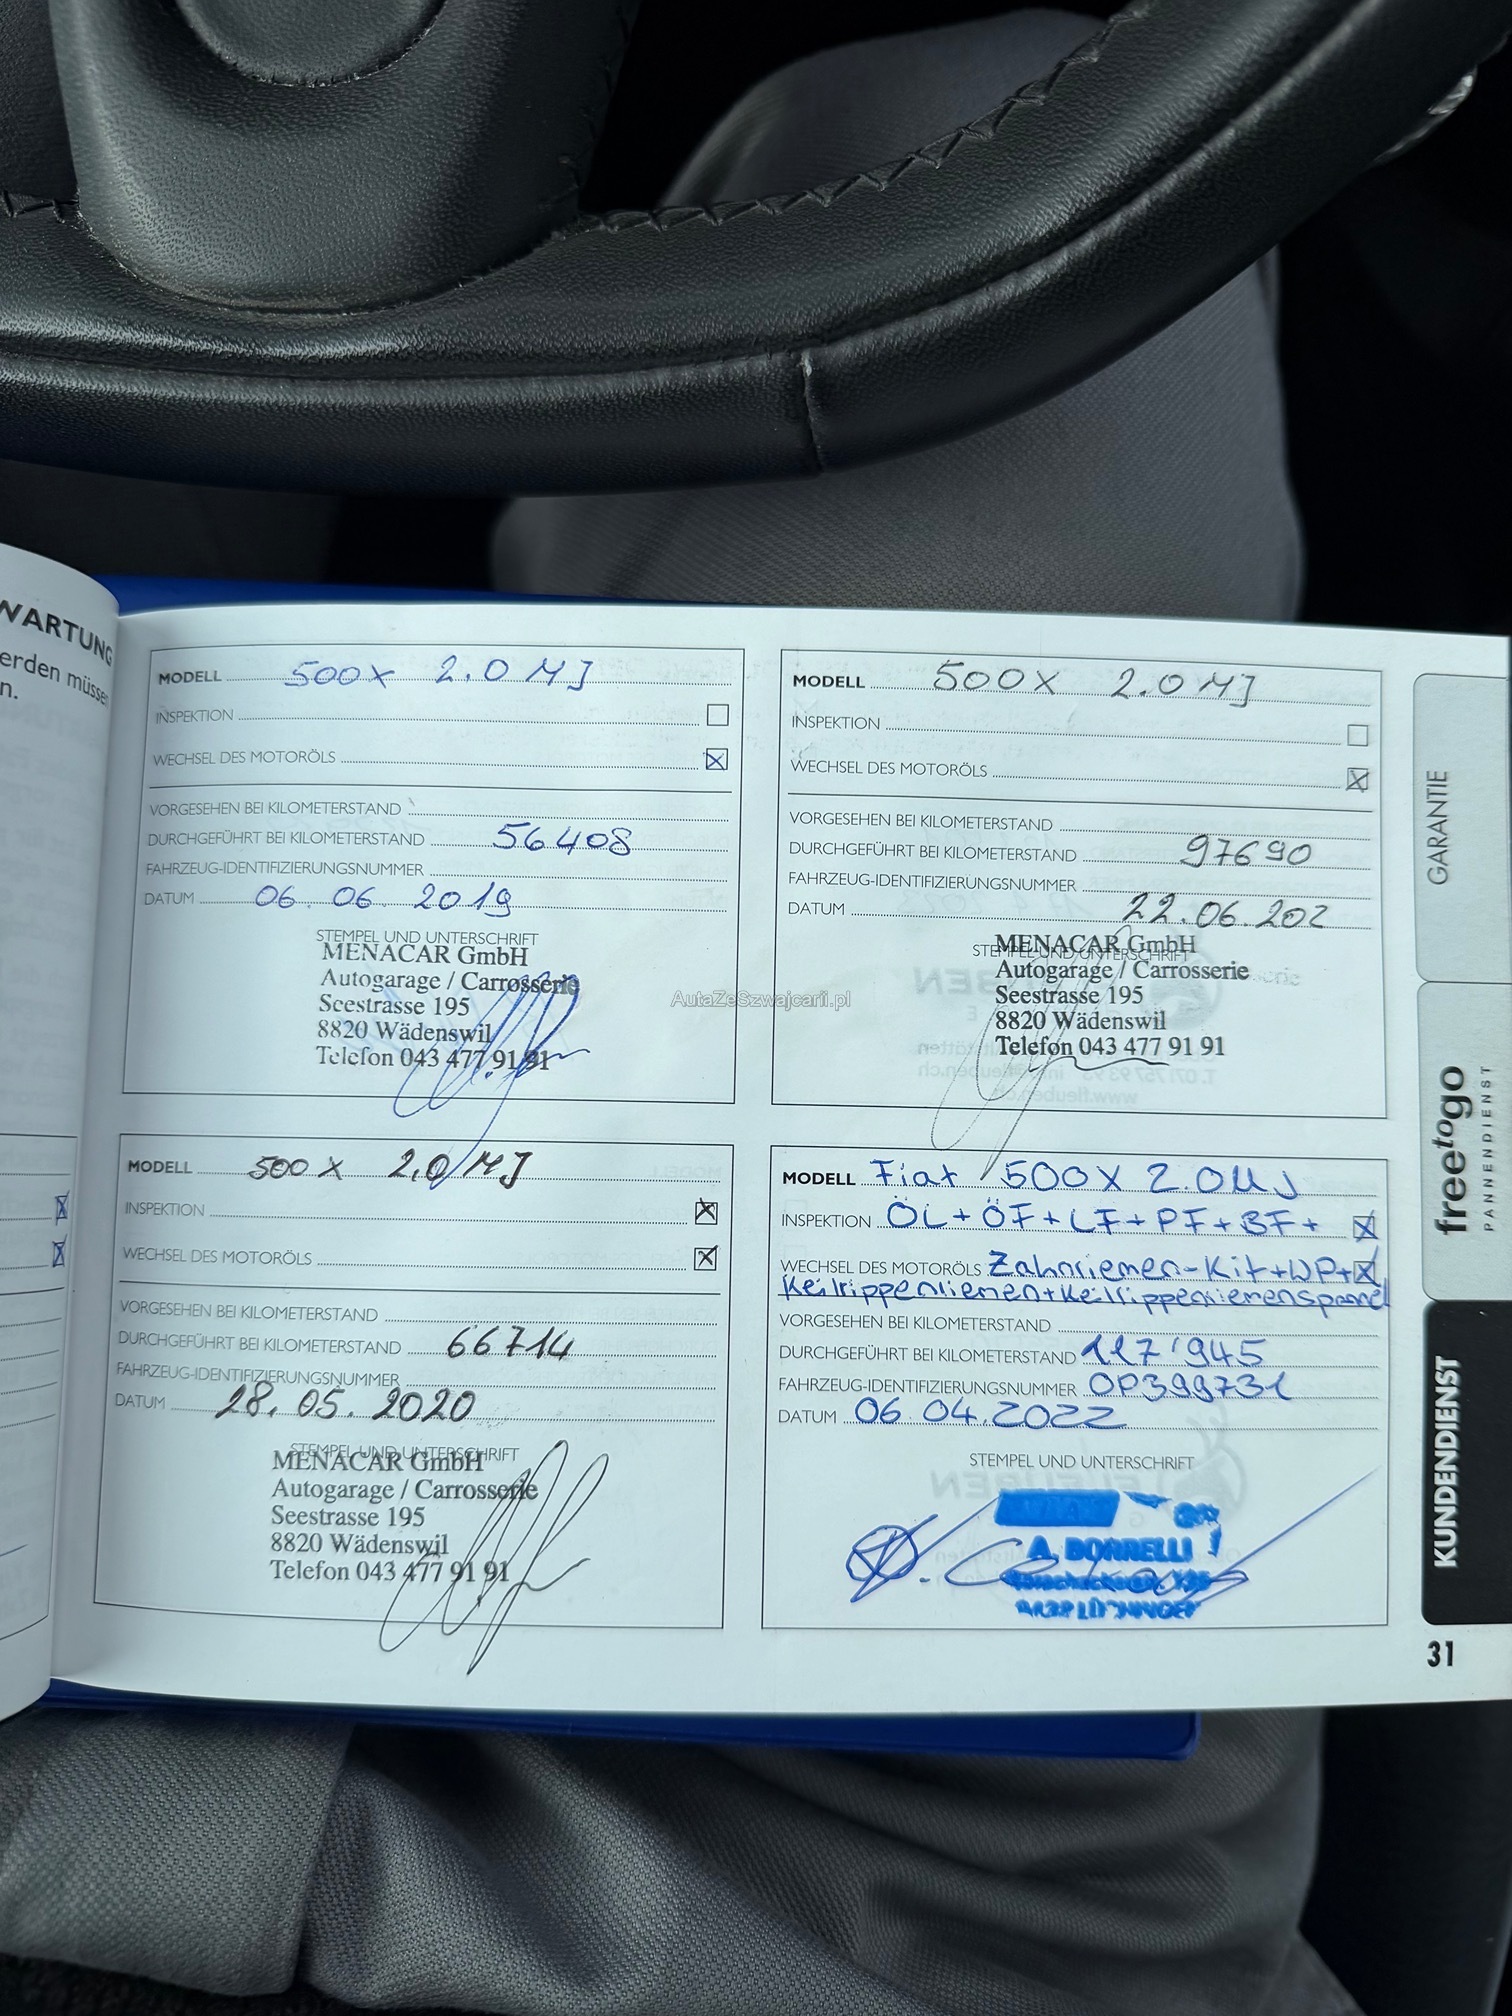 WARTUNG
erden müssen
n.
MODELL 500X 2.0 MJ
INSPEKTION
WECHSEL DES MOTORÖLS
VORGESEHEN BEI KILOMETERSTAND
DURCHGEFÜHRT BEI KILOMETERSTAND 56408
FAHRZEUG-IDENTIFIZIERUNGSNUMMER
DATUM 06. 06. 2019
STEMPEL UND UNTERSCHRIFT
MENACAR GmbH
Autogarage / Carrosserie
Seestrasse 195
8820 Wädenswil
Telefon 043 477 91 91
MODELL 500X 2.0 MJ
INSPEKTION
WECHSEL DES MOTORÖLS
VORGESEHEN BEI KILOMETERSTAND
DURCHGEFÜHRT BEI KILOMETERSTAND 97690
FAHRZEUG-IDENTIFIZIERUNGSNUMMER
DATUM 22.06.202
STEMPEL UND UNTERSCHRIFT
MENACAR GmbH
Autogarage / Carrosserie
Seestrasse 195
8820 Wädenswil
Telefon 043 477 91 91
AutaZeSzwajcarii.pl
MODELL 500 X 2.0 MJ
INSPEKTION
WECHSEL DES MOTORÖLS
VORGESEHEN BEI KILOMETERSTAND
DURCHGEFÜHRT BEI KILOMETERSTAND 66714
FAHRZEUG-IDENTIFIZIERUNGSNUMMER
DATUM 28. 05. 2020
STEMPEL UND UNTERSCHRIFT
MENACAR GmbH
Autogarage / Carrosserie
Seestrasse 195
8820 Wädenswil
Telefon 043 477 91 91
MODELL Fiat 500X 2.0MJ
INSPEKTION ÖL+ÖF+LF+PF+BF+
WECHSEL DES MOTORÖLS Zahnriemen-Kit+WP+
Keilrippenriemen+Keilrippenriemenspanner
VORGESEHEN BEI KILOMETERSTAND
DURCHGEFÜHRT BEI KILOMETERSTAND 117'945
FAHRZEUG-IDENTIFIZIERUNGSNUMMER OP399731
DATUM 06.04.2022
STEMPEL UND UNTERSCHRIFT
A. BORRELLI
GARANTIE
freetogo
PANNENDIENST
KUNDENDIENST
31